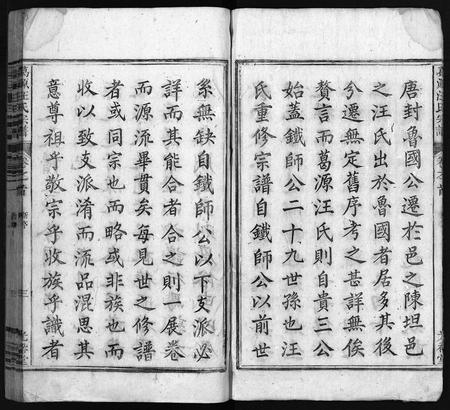 唐封魯國公遷於邑之陳坦邑
之汪氏出於魯國者居多其後
分遷無定舊序考之甚詳無俟
贅言而葛源汪氏則自貴三公
始蓋鐵師公二十九世孫也汪
氏重修宗譜自鐵師公以前世
系無缺自鐵師公以下支派必
詳而其能合者合之則一展卷
而源流畢貫矣每見世之修譜
者或同宗也而略或非族也而
收以致支派淆而流品混思其
意尊祖乎敬宗乎收族乎識者
葛源汪氏宗譜
卷之首